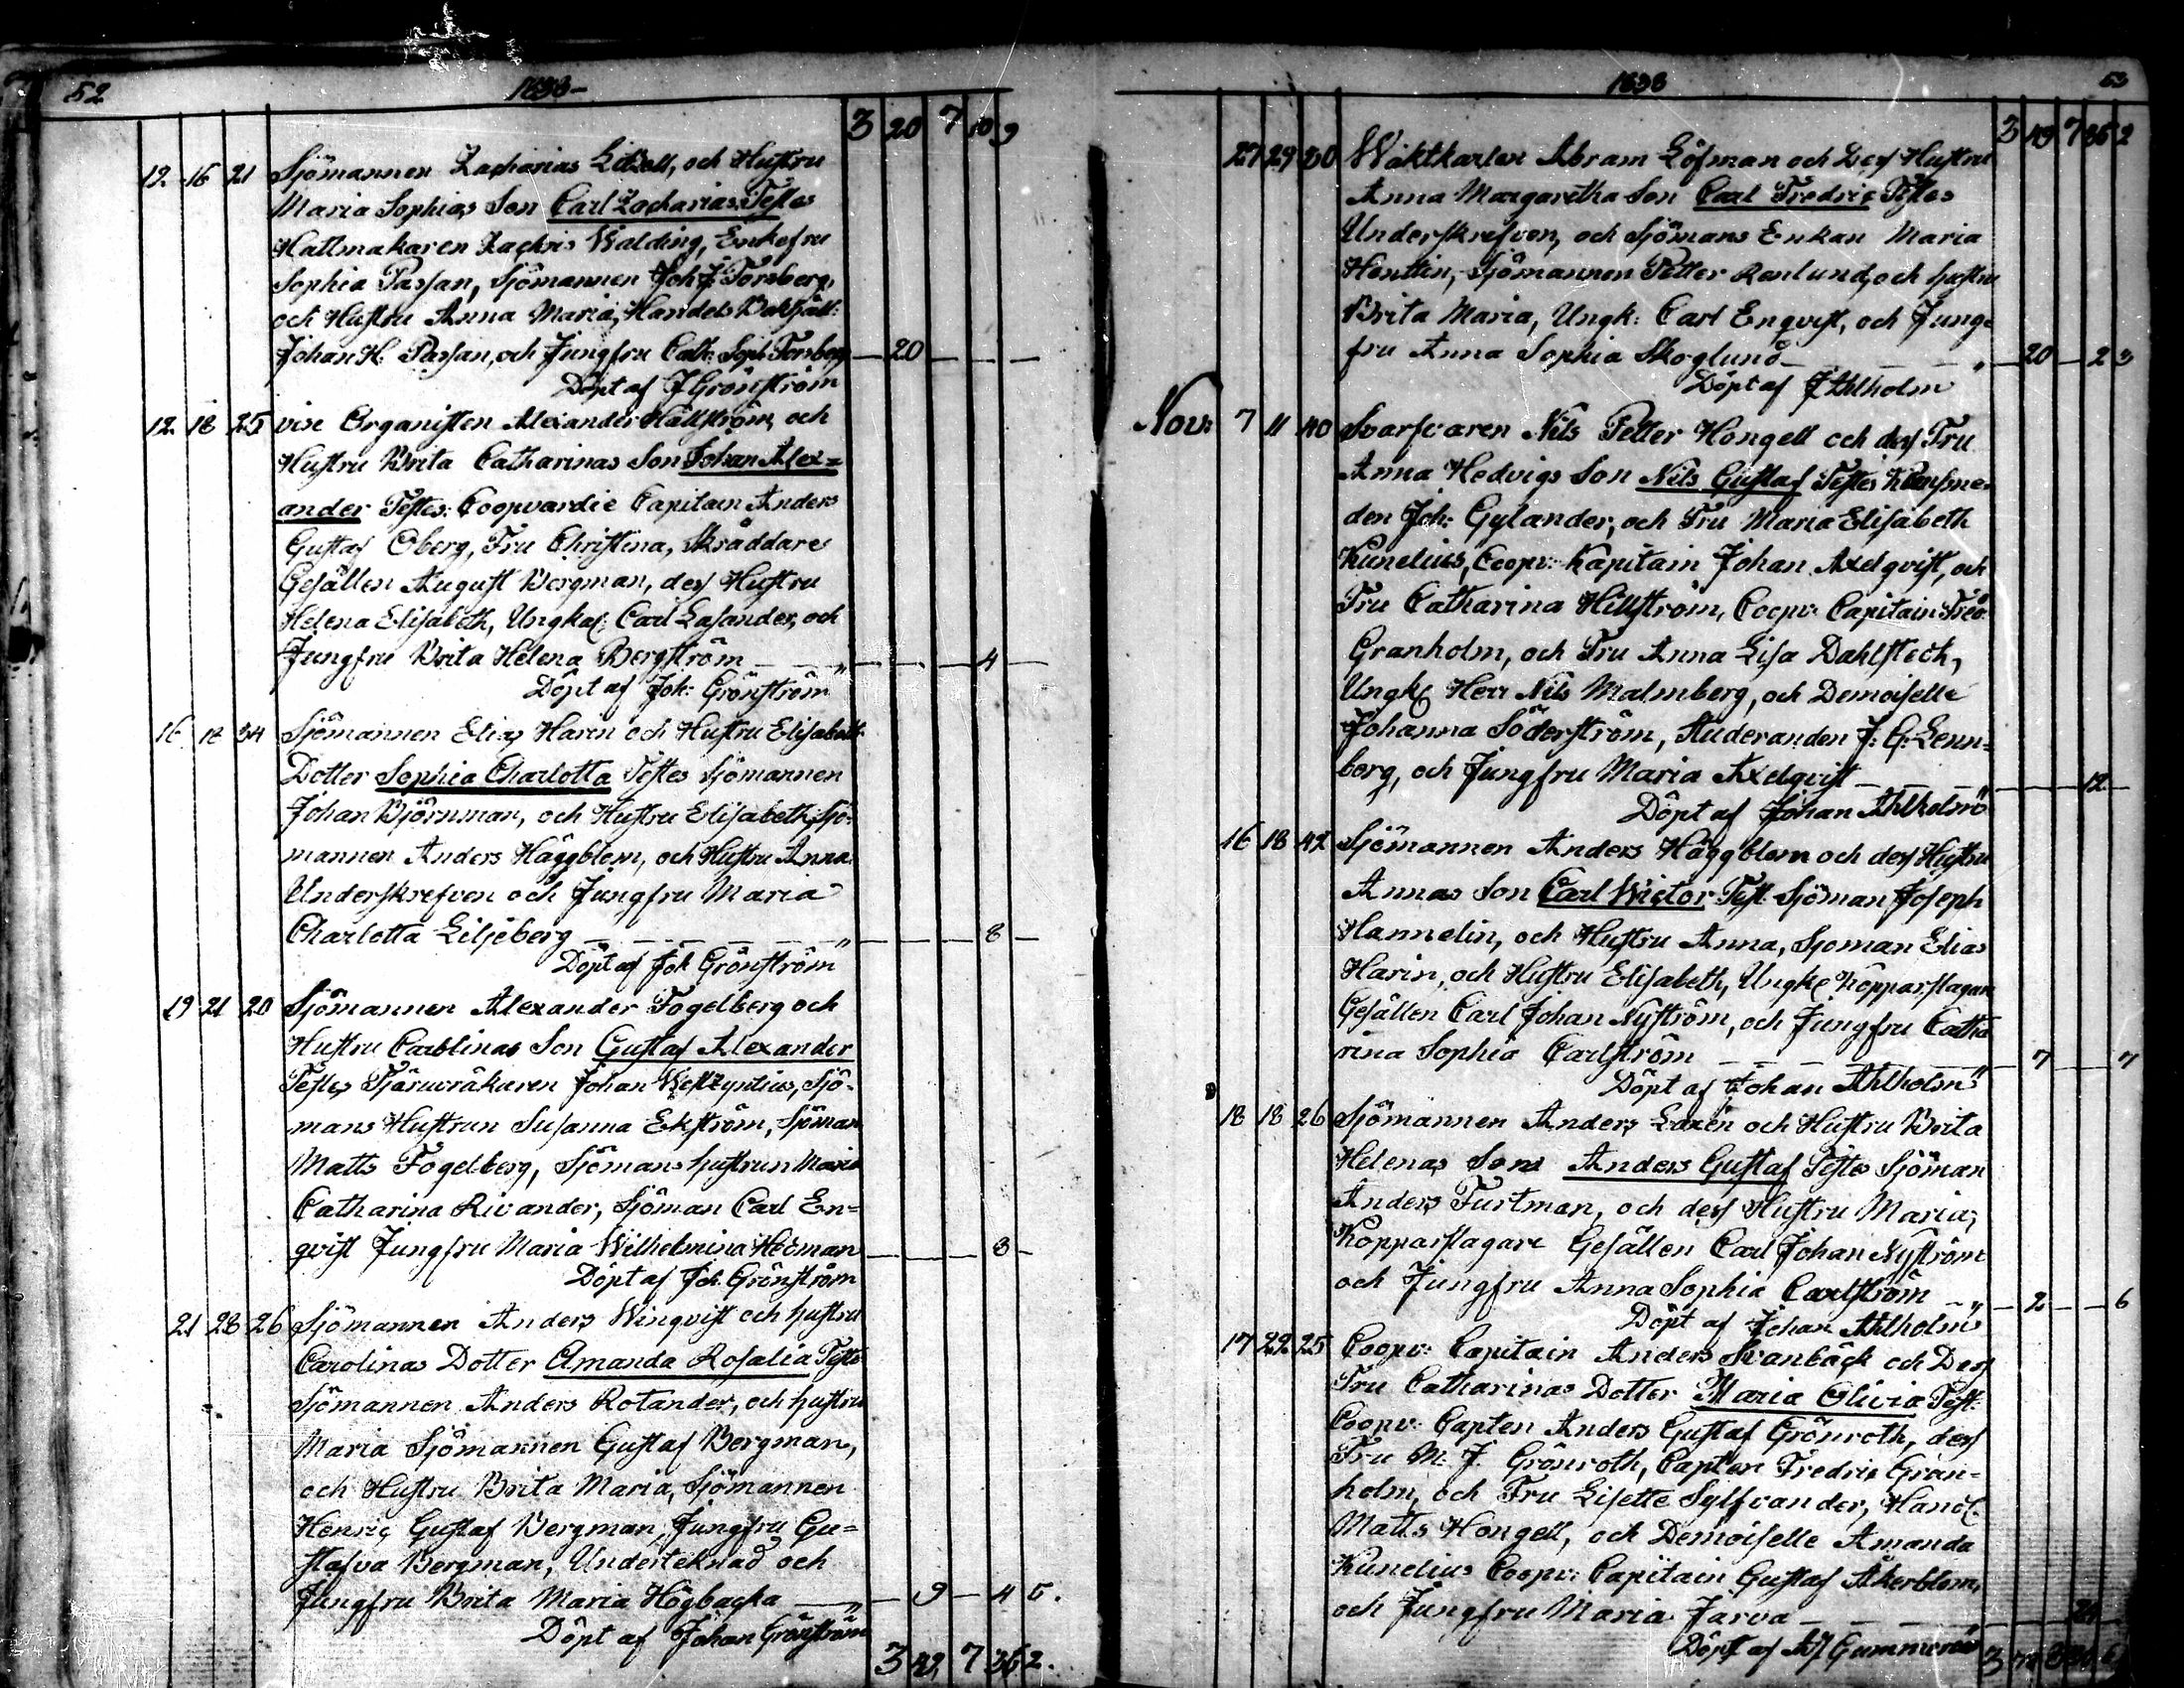 52
1838-
3 20 7 10 9
12 16 21 Sjömannen Zacharias Litzell, och Hustru
Maria Sophias Son Carl Zacharias Testes
Hattmakaren Zachris Walding, Enkefru
Sophia Passan, Sjömannen Joh: J: Forsberg,
och Hustru Anna Maria, Handels Bokhåll:
Johan H. Passan, och Jungfru Cath: Soph: Forsberg — 20 — — —
Döpt af J Grönström
12 18 25 vice Organisten Alexander Hällström, och
Hustru Brita Catharinas Son Johan Alex=
ander Testes: Coopvardie Capitain Anders
Gustaf Öberg, Fru Christina, Skräddare
Gesällen August Bergman, dess Hustru
Helena Elisabeth, Ungkar: Carl Lasander, och
Jungfru Brita Helena Bergström — — — 4 —
Döpt af Joh: Grönström
16 18 34 Sjömannen Elias Harin och Hustru Elisabeth
Dotter Sophia Charlotta Testes Sjömannen
Johan Björnman, och Hustru Elisabeth, Sjö-
mannen Anders Häggblom, och Hustru Anna
Underskrefven och Jungfru Maria
Charlotta Liljeberg — — — 8 —
Döpt af Joh Grönström
19 21 20 Sjömannen Alexander Fogelberg och
Hustru Carolinas Son Gustaf Alexander
Testes Tjäruvräkaren Johan Westzyntius, Sjö-
mans Hustrun Susanna Ekström, Sjöman
Matts Fogelberg, Sjömans hustrun Maria
Catharina Rivander, Sjöman Carl En=
qvist Jungfru Maria Wilhelmina Hedman — — — 3 —
Döpt af Joh. Grönström
21 28 26 Sjömannen Anders Winqvist och hustru
Carolinas Dotter Amanda Rosalia Testes
Sjömannen Anders Rotander, och hustru
Maria Sjömannen Gustaf Bergman,
och Hustru Brita Maria, Sjömannen
Henric Gustaf Bergman, Jungfru Gu=
stafva Bergman, Underteknad och
Jungfru Brita Maria Högbacka — 9 — 4 5.
Döpt af Johan Grönström
3 49, 7 36 2.
1838
53
3 49 7 36 2
27 29 30 Waktkarlen Abram Löfman och Dess Hustru
Anna Margaretha Son Carl Fredric Testes
Underskrefven, och Sjömans Enkan Maria
Henttin, Sjömannen Petter Renlund, och hustru
Brita Maria, Ungk: Carl Enqvist, och Jung-
fru Anna Sophia Skoglund — 20 — 2 3
Döpt af J Ahlholm
Nov: 7 11 40 Svarfvaren Nils Petter Hongell och dess Fru
Anna Hedvigs Son Nils Gustaf Testes Klensme-
den Joh: Gylander, och Fru Maria Elisabeth
Kunelius, Coopv: Kapitain Johan Axelqvist, och
Fru Catharina Hillström, Coopv: Capitain Fred:
Granholm, och Fru Anna Lisa Dahlstedt,
Ungk: Herr Nils Malmberg, och Demoiselle
Johanna Söderström, Studeranden J: G: Lenn=
berg, och Jungfru Maria Axelqvist — — — 12 —
Döpt af Johan Ahlholm
16 18 42 Sjömannen Anders Häggblom och dess Hustru
Annas Son Carl Wictor Test: Sjöman Joseph
Hannelin, och Hustru Anna, Sjöman Elias
Harin, och Hustru Elisabeth, Ungk: Kopparslagare
Gesällen Carl Johan Nyström, och Jungfru Catha
rina Sophia Carlström — 7 — — 7
Döpt af Johan Ahlholm
18 18 26 Sjömannen Anders Laxén och Hustru Brita
Helenas Son Anders Gustaf Testes Sjöman
Anders Furtman, och dess Hustru Maria,
Kopparslagare Gesällen Carl Johan Nyström
och Jungfru Anna Sophia Carlström — 2 — — 6
Döpt af Johan Ahlholm
17 22 25 Coopv: Capitain Anders Svanbäck och Dess
Fru Catharinas Dotter Maria Olivia Test:
Coopv: Capten Anders Gustaf Grönroth, dess
Fru M. J. Grönroth, Capten Fredric Gran-
holm, och Fru Lisette Sylfvander, Handl:
Matts Hongell, och Demoiselle Amanda
Kunelius Coopv: Capitain Gustaf Åkerblom,
och Jungfru Maria Jarva —
Döpt af